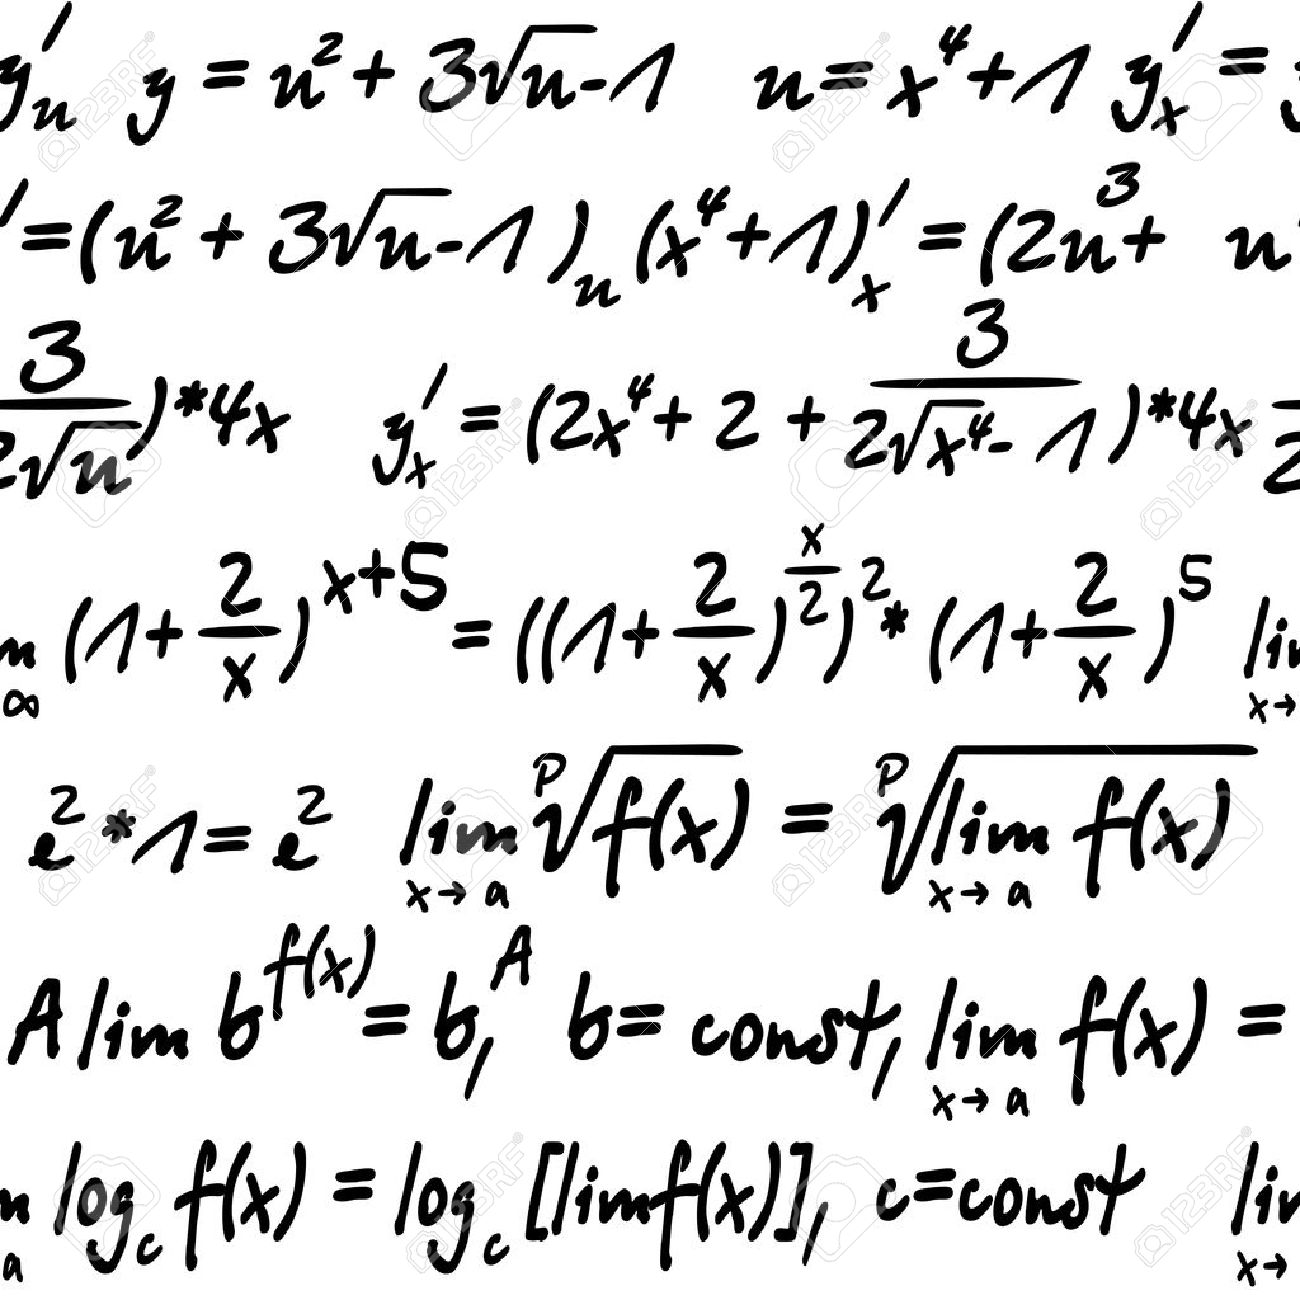 y'ᵤ y = u² + 3√u-1 u= x⁴+1 y'ₓ =
'=(u² + 3√u-1)ᵤ (x⁴+1)'ₓ = (2u+ 3 u
3/(2√u))*4x y'ₓ = (2x⁴+ 2 + 3/(2√x⁴- 1))*4x 2
∞ (1+2/x)^(x+5) = ((1+2/x)^(x/2))²* (1+2/x)⁵ lim x→
e²*1= e² lim x→a ᵖ√f(x) = ᵖ√lim x→a f(x)
A lim b^f(x) = b,^A b= const, lim x→a f(x) =
a log_c f(x) = log_c [limf(x)], c=const lim x→
123RF